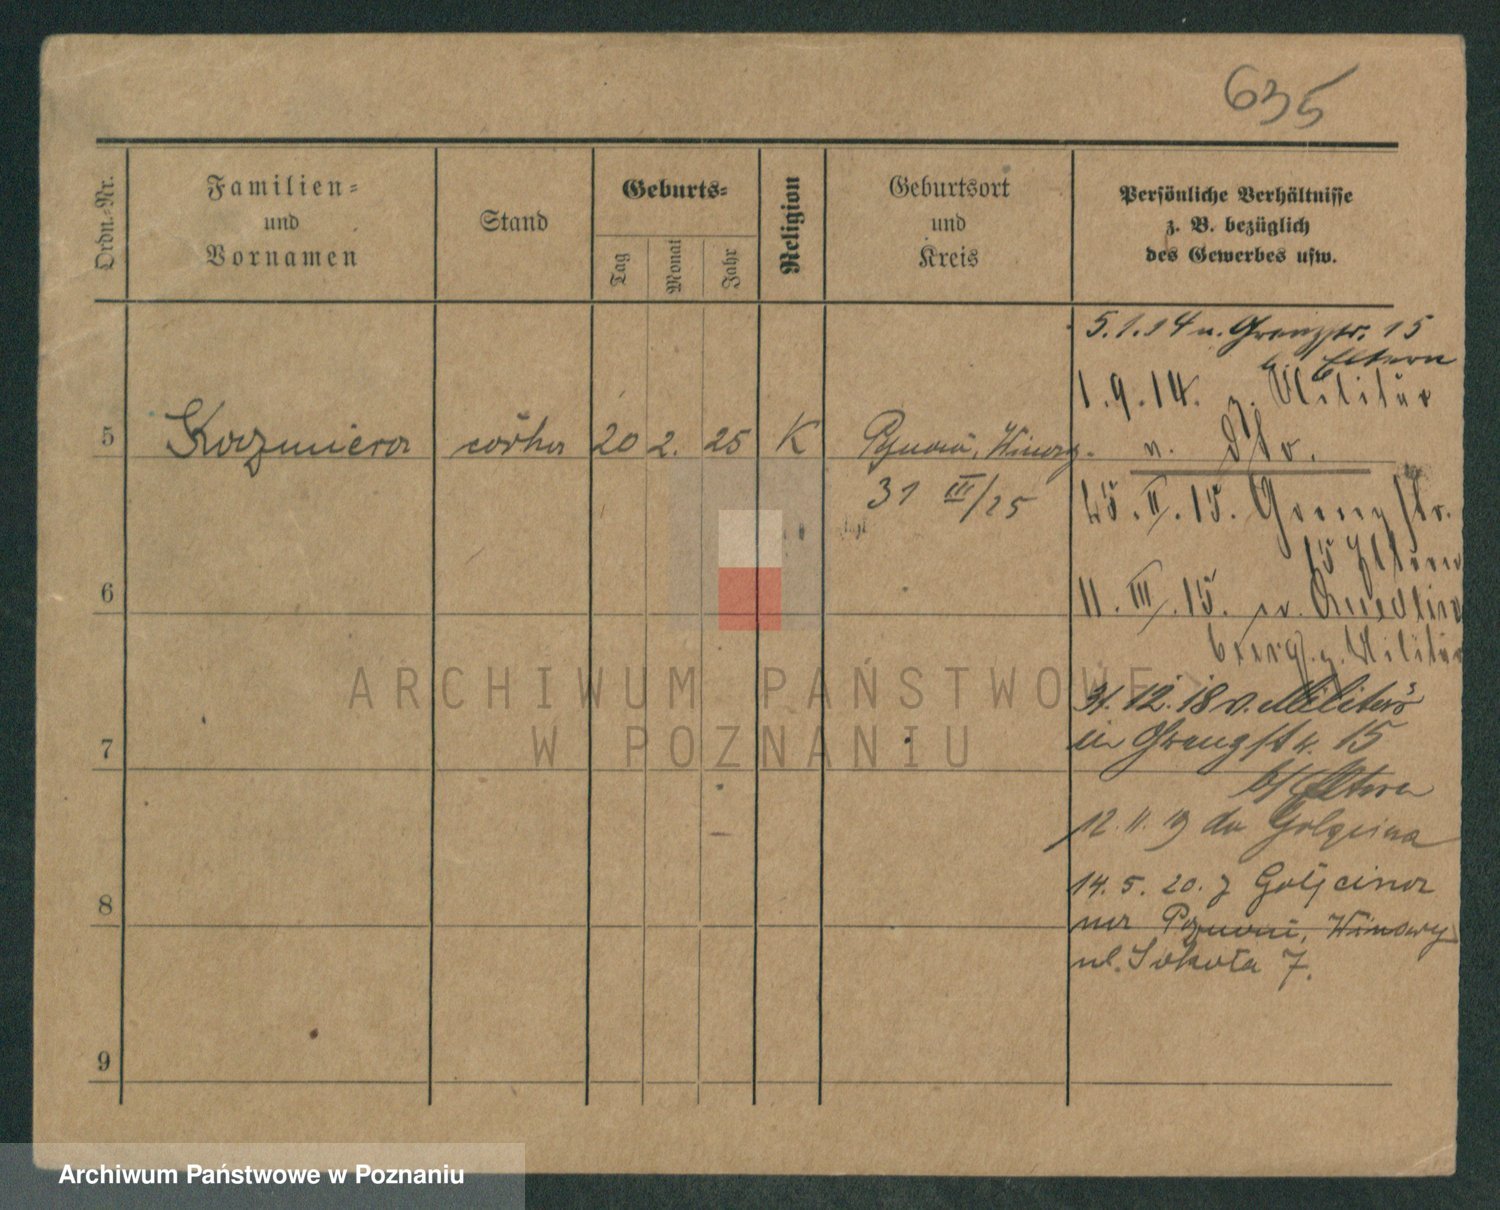 635
Ordn.-Nr.
Familien-
und
Vornamen
Stand
Geburts-
Tag
Monat
Jahr
Religion
Geburtsort
und
Kreis
Persönliche Verhältnisse
z. B. bezüglich
des Gewerbes usw.
5.1.14 n. Grenzstr. 15
b/ Eltern
1.9.14. z. Militär
5 Kazmiera córka 20 2. 25 K Poznań, Winiary.
31 III/25
25.II.15. Grenzstr.
15 Eltern
6
11.III.15. n. Quedlin
burg z. Militär
31.12.18 v. Militär
in Grenzstr. 15
7
b/ Eltern
12.11.19 do Golęcina
14.5.20. z Golęcina
8
na Poznań, Winiary
ul. Sokoła 7.
9
ARCHIWUM PAŃSTWOWE
W POZNANIU
Archiwum Państwowe w Poznaniu